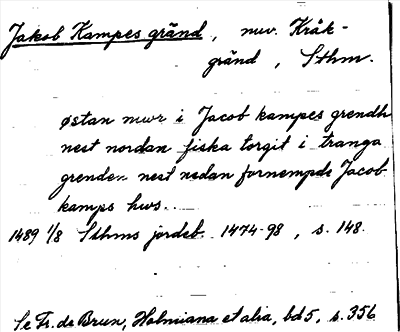 Jakob Kampes gränd, nuv. Kråk-
gränd, Sthm.
østan mwr i Jacob kampes grendh
nest nordan fiska torgit i tranga
grenden nest nedan fornempde Jacob
kamps hws.
1489 1/8 Sthms jordeb. 1474-98, s. 148.
Se Fr. de Brun, Holmiana et alia, bd 5, s. 356